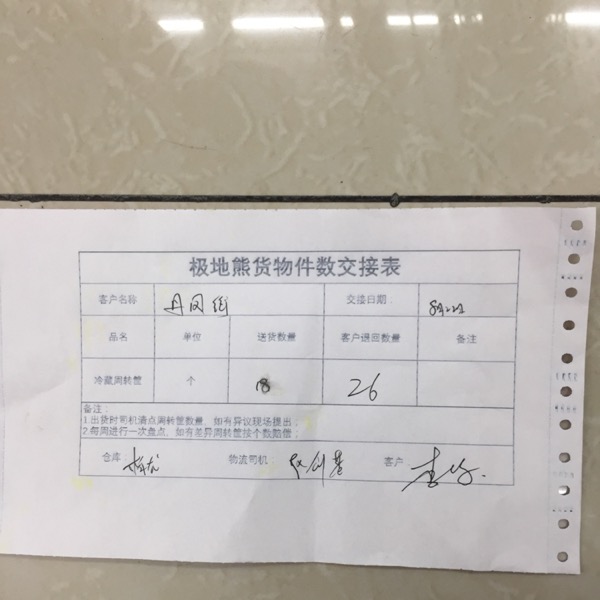 极地熊货物件数交接表
客户名称 丹凤街 交接日期:
品名 单位 送货数量 客户退回数量 备注
冷藏周转筐 个 18 26
备注:
1.出货时司机清点周转筐数量,如有异议现场提出;
2.每周进行一次盘点,如有差异周转筐按个数赔偿;
仓库: 物流司机: 客户: